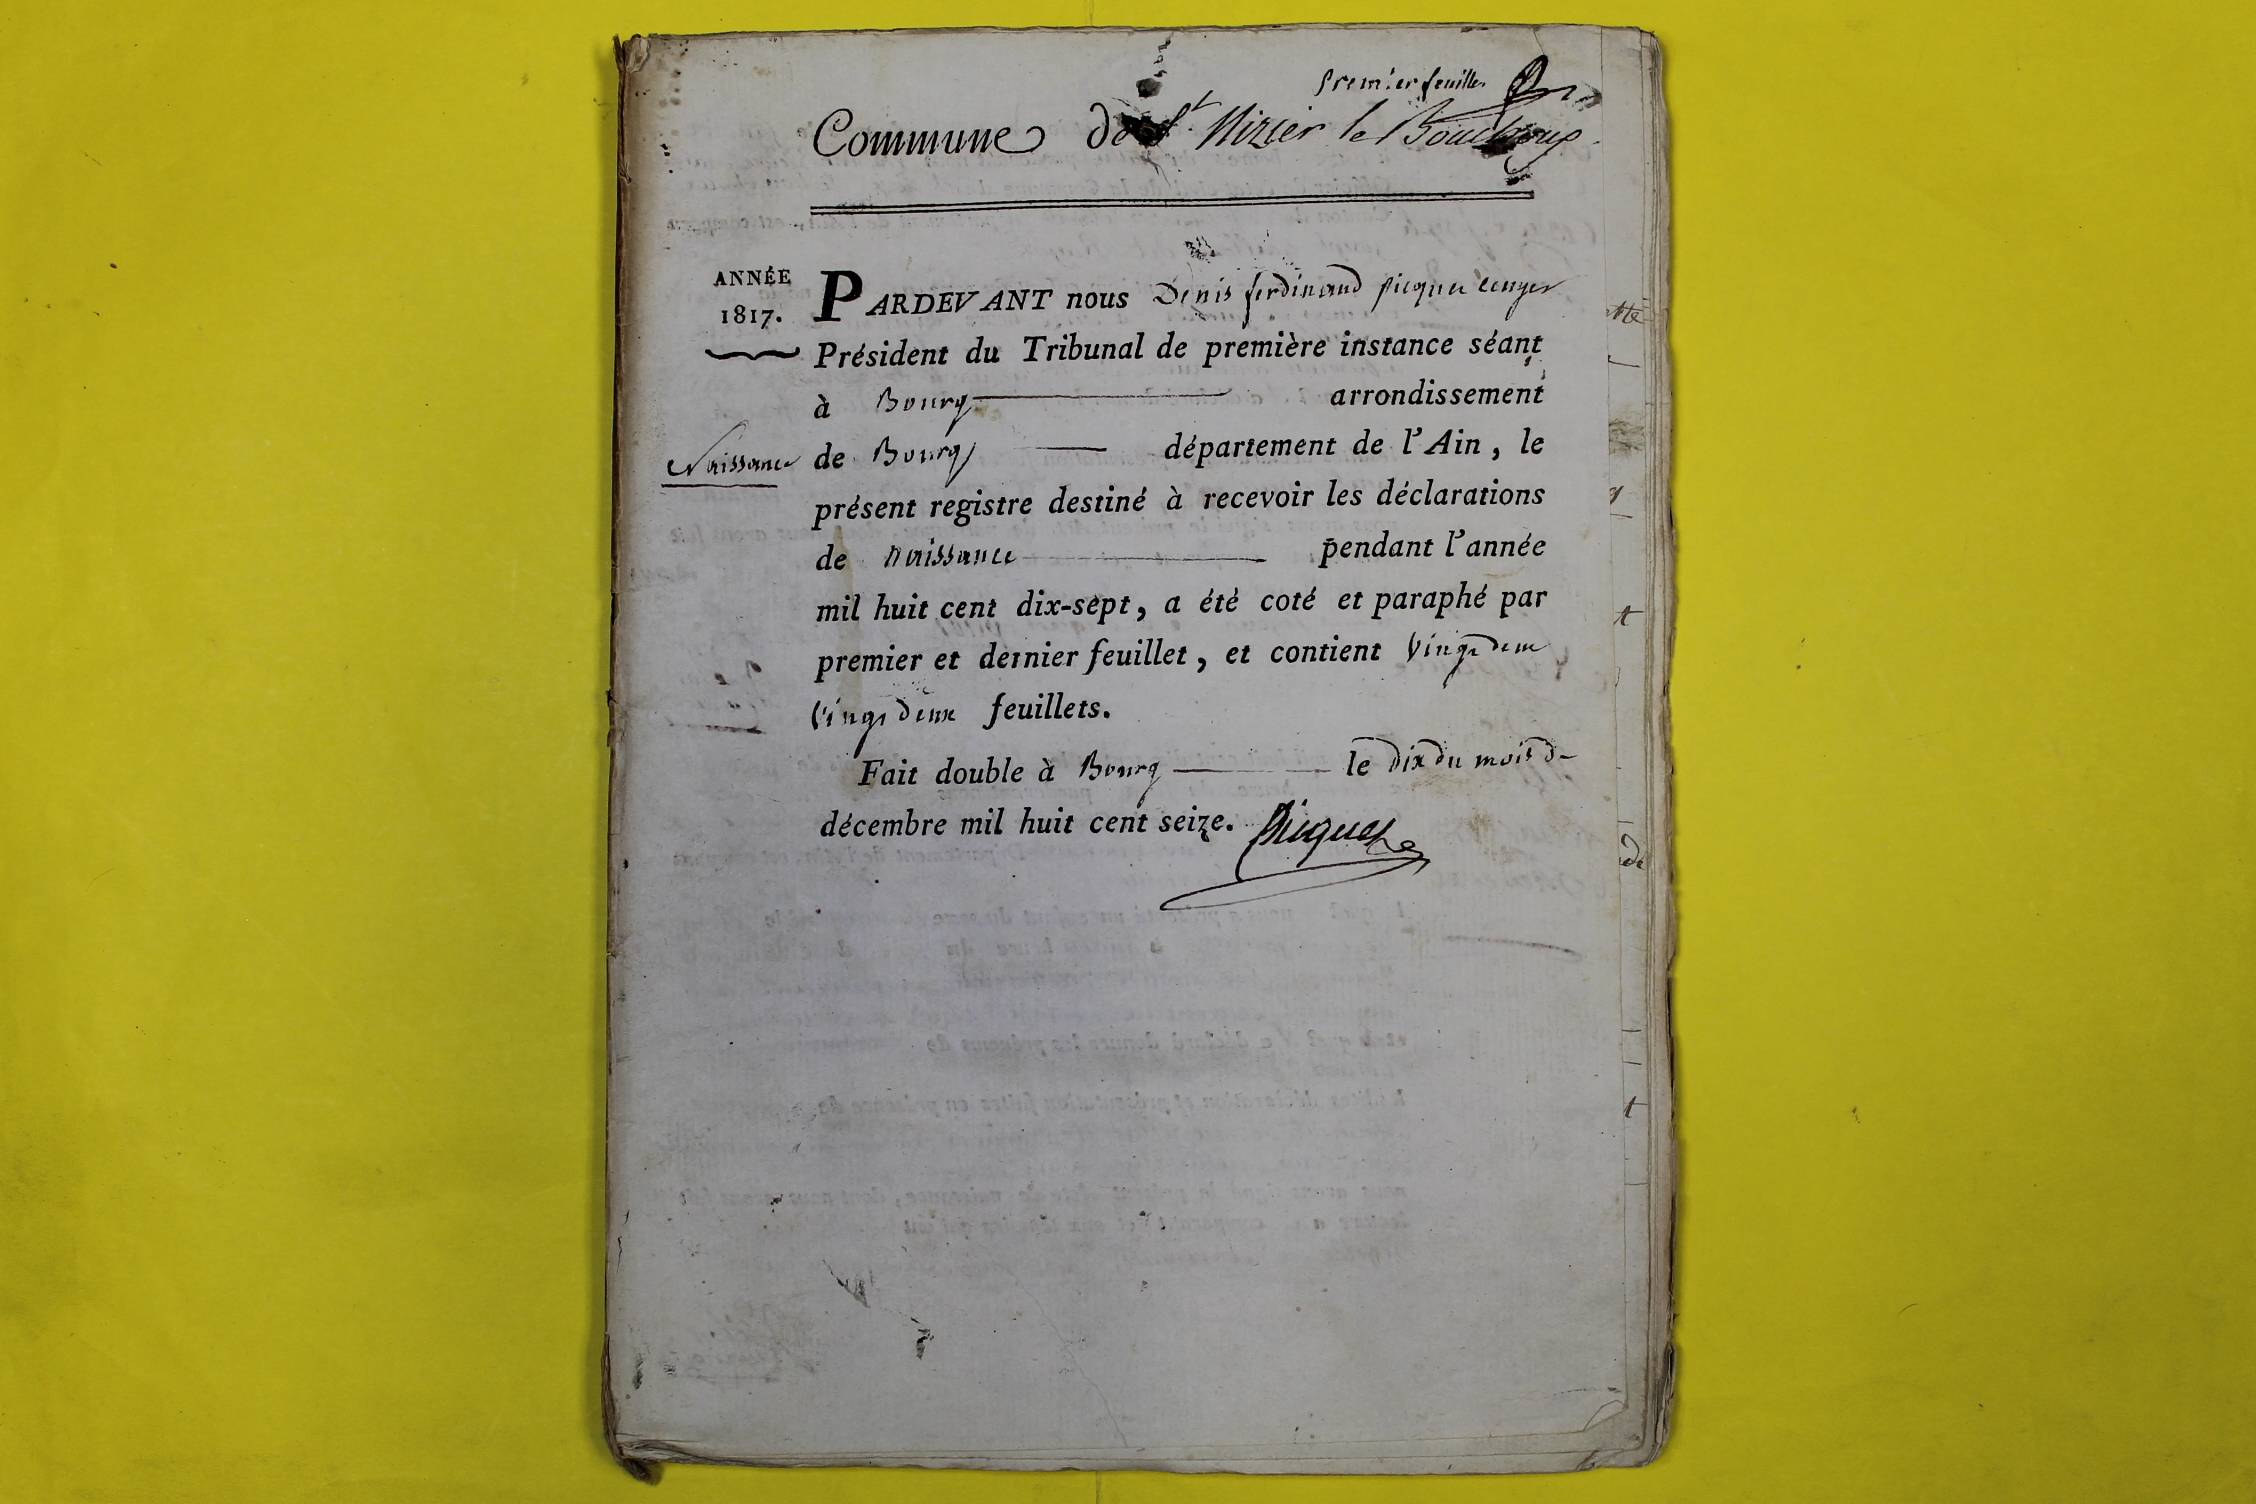 premier feuillet
Commune de St. Nizier le Bouchoux
ANNÉE
1817.
PARDEVANT nous Denis ferdinand picquet
Président du Tribunal de première instance séant
à Bourg arrondissement
Naissance
de Bourg département de l'Ain, le
présent registre destiné à recevoir les déclarations
de naissance pendant l'année
mil huit cent dix-sept, a été coté et paraphé par
premier et dernier feuillet, et contient vingt deux
vingt deux feuillets.
Fait double à Bourg le dix du mois de
décembre mil huit cent seize. Picquet